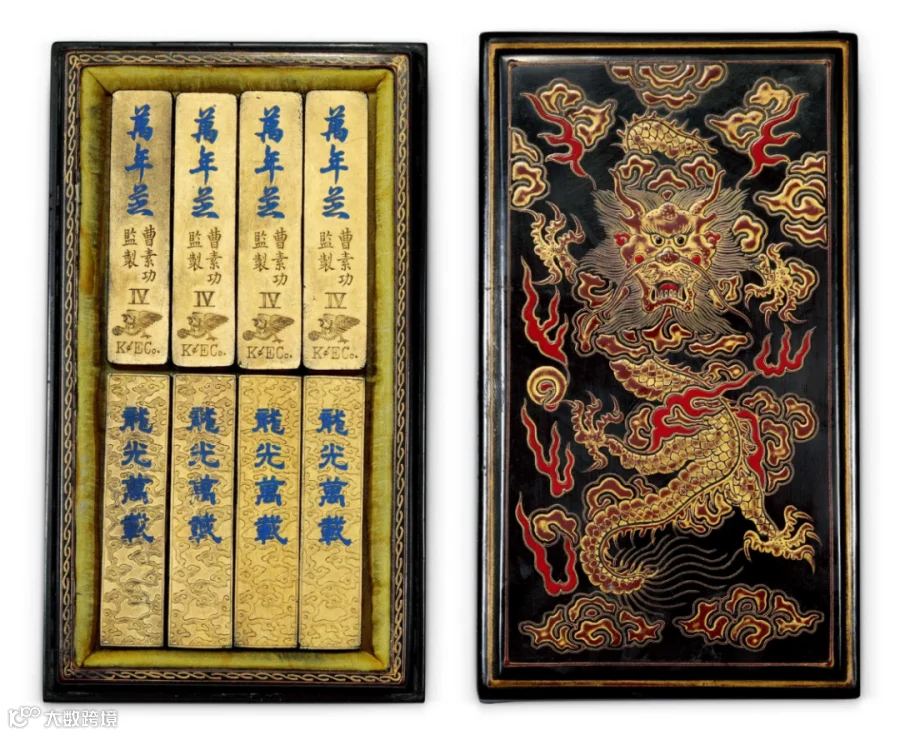 萬年芝
曹素功
監製
IV
K&ECo.
萬年芝
曹素功
監製
IV
K&ECo.
萬年芝
曹素功
監製
IV
K&ECo.
萬年芝
曹素功
監製
IV
K&ECo.
龍光萬載
龍光萬載
龍光萬載
龍光萬載
大数跨境